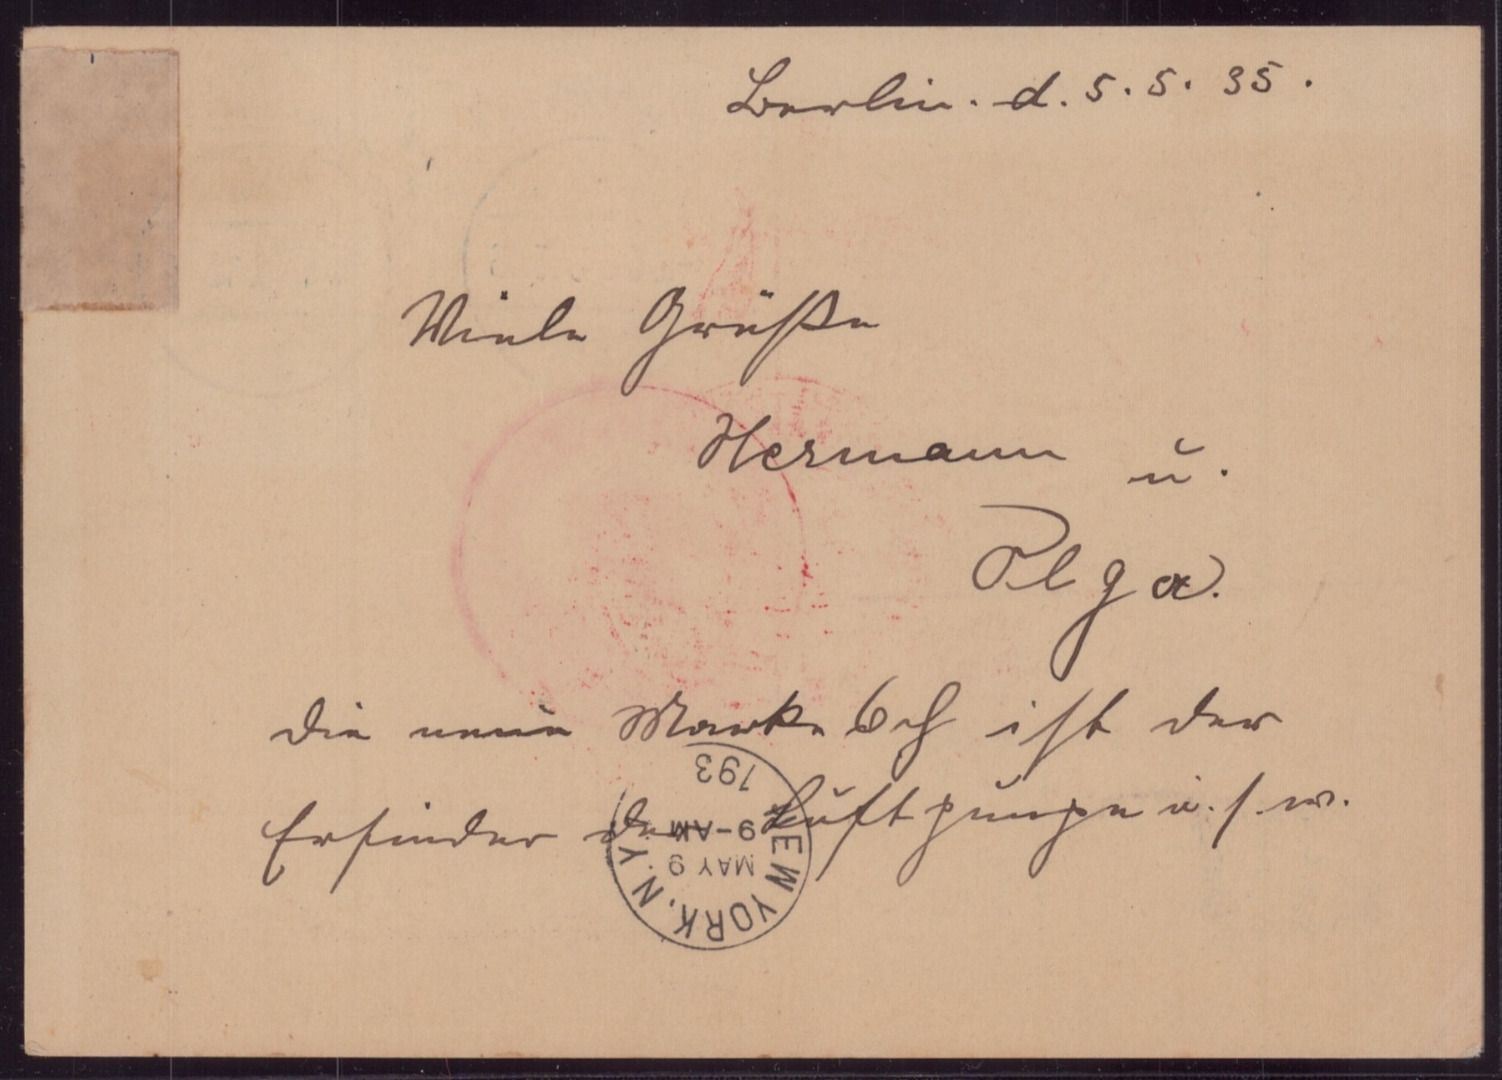 Berlin. d. 5. 5. 35.
Viele Grüße
Hermann u.
Olga.
die neue Marke 6 ₰ ist der
Erfinder der Luftpumpe u. s. w.
NEW YORK, N.Y.
MAY 9
9-AM
193